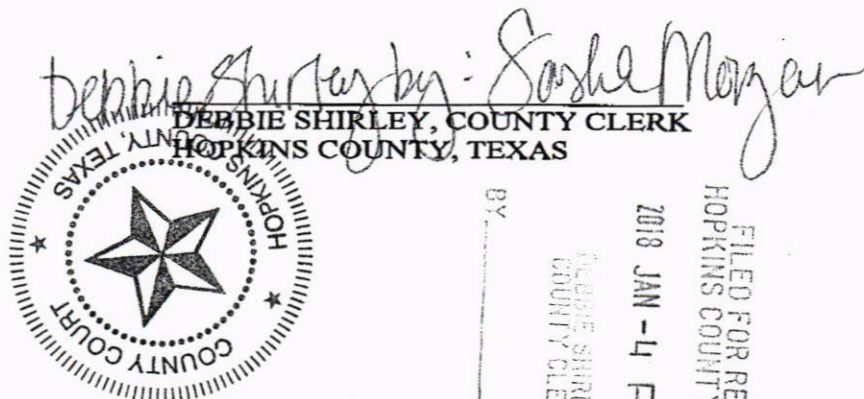 Debbie Shirley by: Sasha Morgan
DEBBIE SHIRLEY, COUNTY CLERK
HOPKINS COUNTY, TEXAS
HOPKINS COUNTY, TEXAS
COUNTY COURT
FILED FOR RE
HOPKINS COUNTY
2018 JAN -4 P
DEBBIE SHIRL
COUNTY CLE
BY